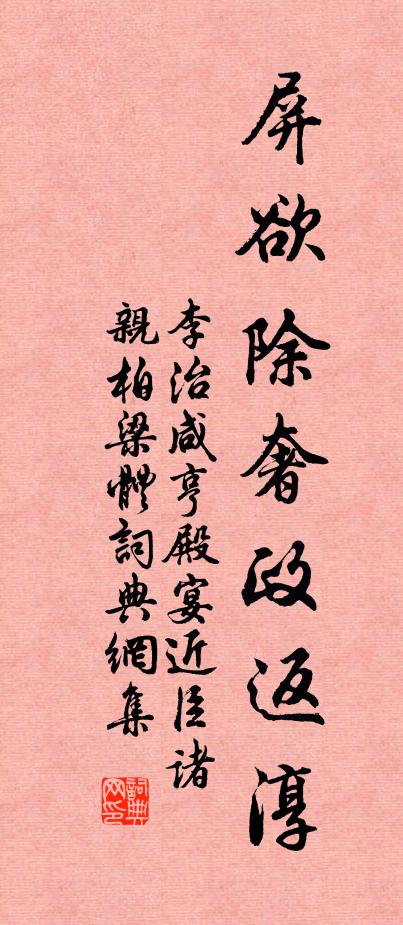 屏欲除奢政返淳
李治咸亨殿宴近臣諸
親柏梁體詞典網集
詞典
网印